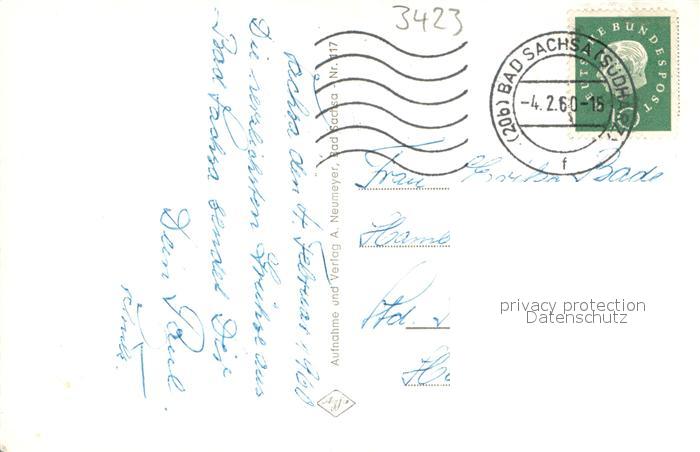 3423
(20b) BAD SACHSA (SÜDHARZ)
-4.2.60-16
f
DEUTSCHE BUNDESPOST
Sachsa den 4. Februar 1960
Die herzlichsten Grüße aus
Bad Sachsa sendet Dir
Dein Paul
Aufnahme und Verlag A. Neumeyer, Bad Sachsa - Nr. 117
Frau Bade
Hamb
privacy protection
Datenschutz